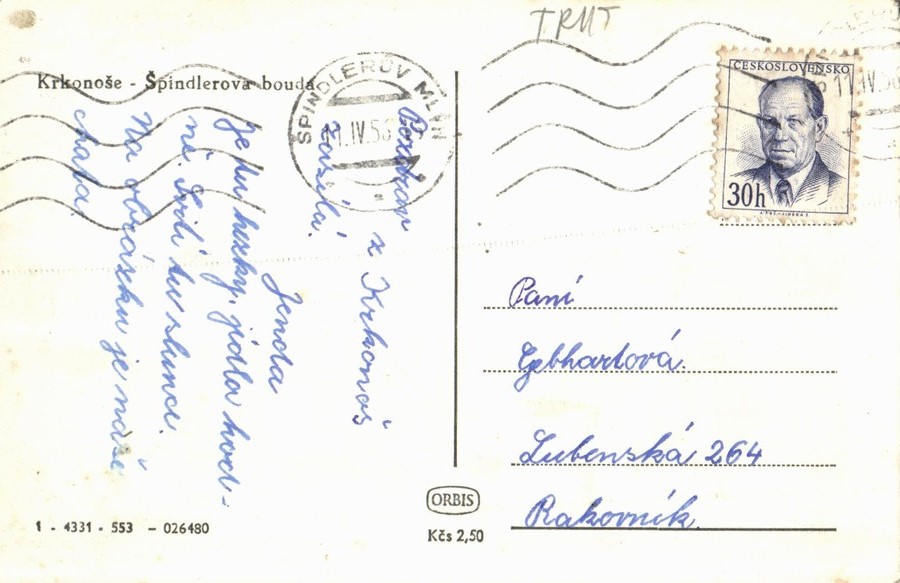 TRUT
Krkonoše - Špindlerova bouda
ŠPINDLERŮV MLÝN
11.IV.56
ČESKOSLOVENSKO
30h
Pozdrav
z Krkonoš
zasílá
Jenda
Je tu hezky, jídla hod-
ně. Svítí tu slunce.
Na obrázku je naše
chata.
Paní
Gebhartová.
Lubenská 264
Rakovník
ORBIS
Kčs 2,50
1 - 4331 - 553 - 026480